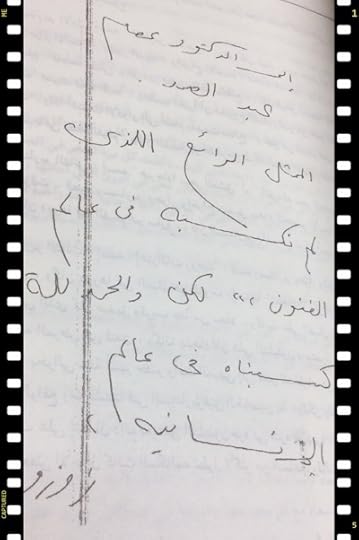 إلى الدكتور عصام
عبد الصمد .
الممثل الرائع اللذى
لم نكسبه فى عالم
الفنون ،، لكن والحمد للة
كسبناه فى عالم
الإنسانيه ،